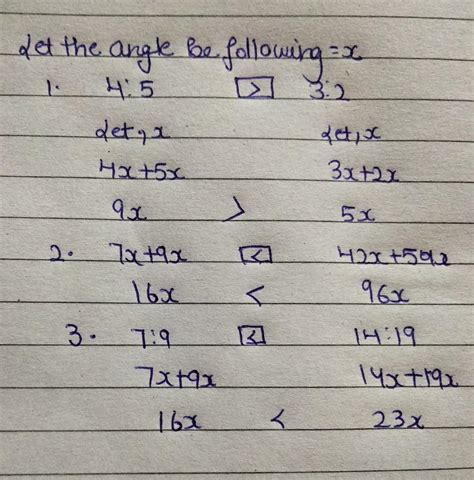 Let the angle be following = x
1. 4:5 > 3:2
Let, x Let, x
4x+5x 3x+2x
9x > 5x
2. 7x+9x < 42x+59x
16x < 96x
3. 7:9 < 14:19
7x+9x 14x+19x
16x < 23x